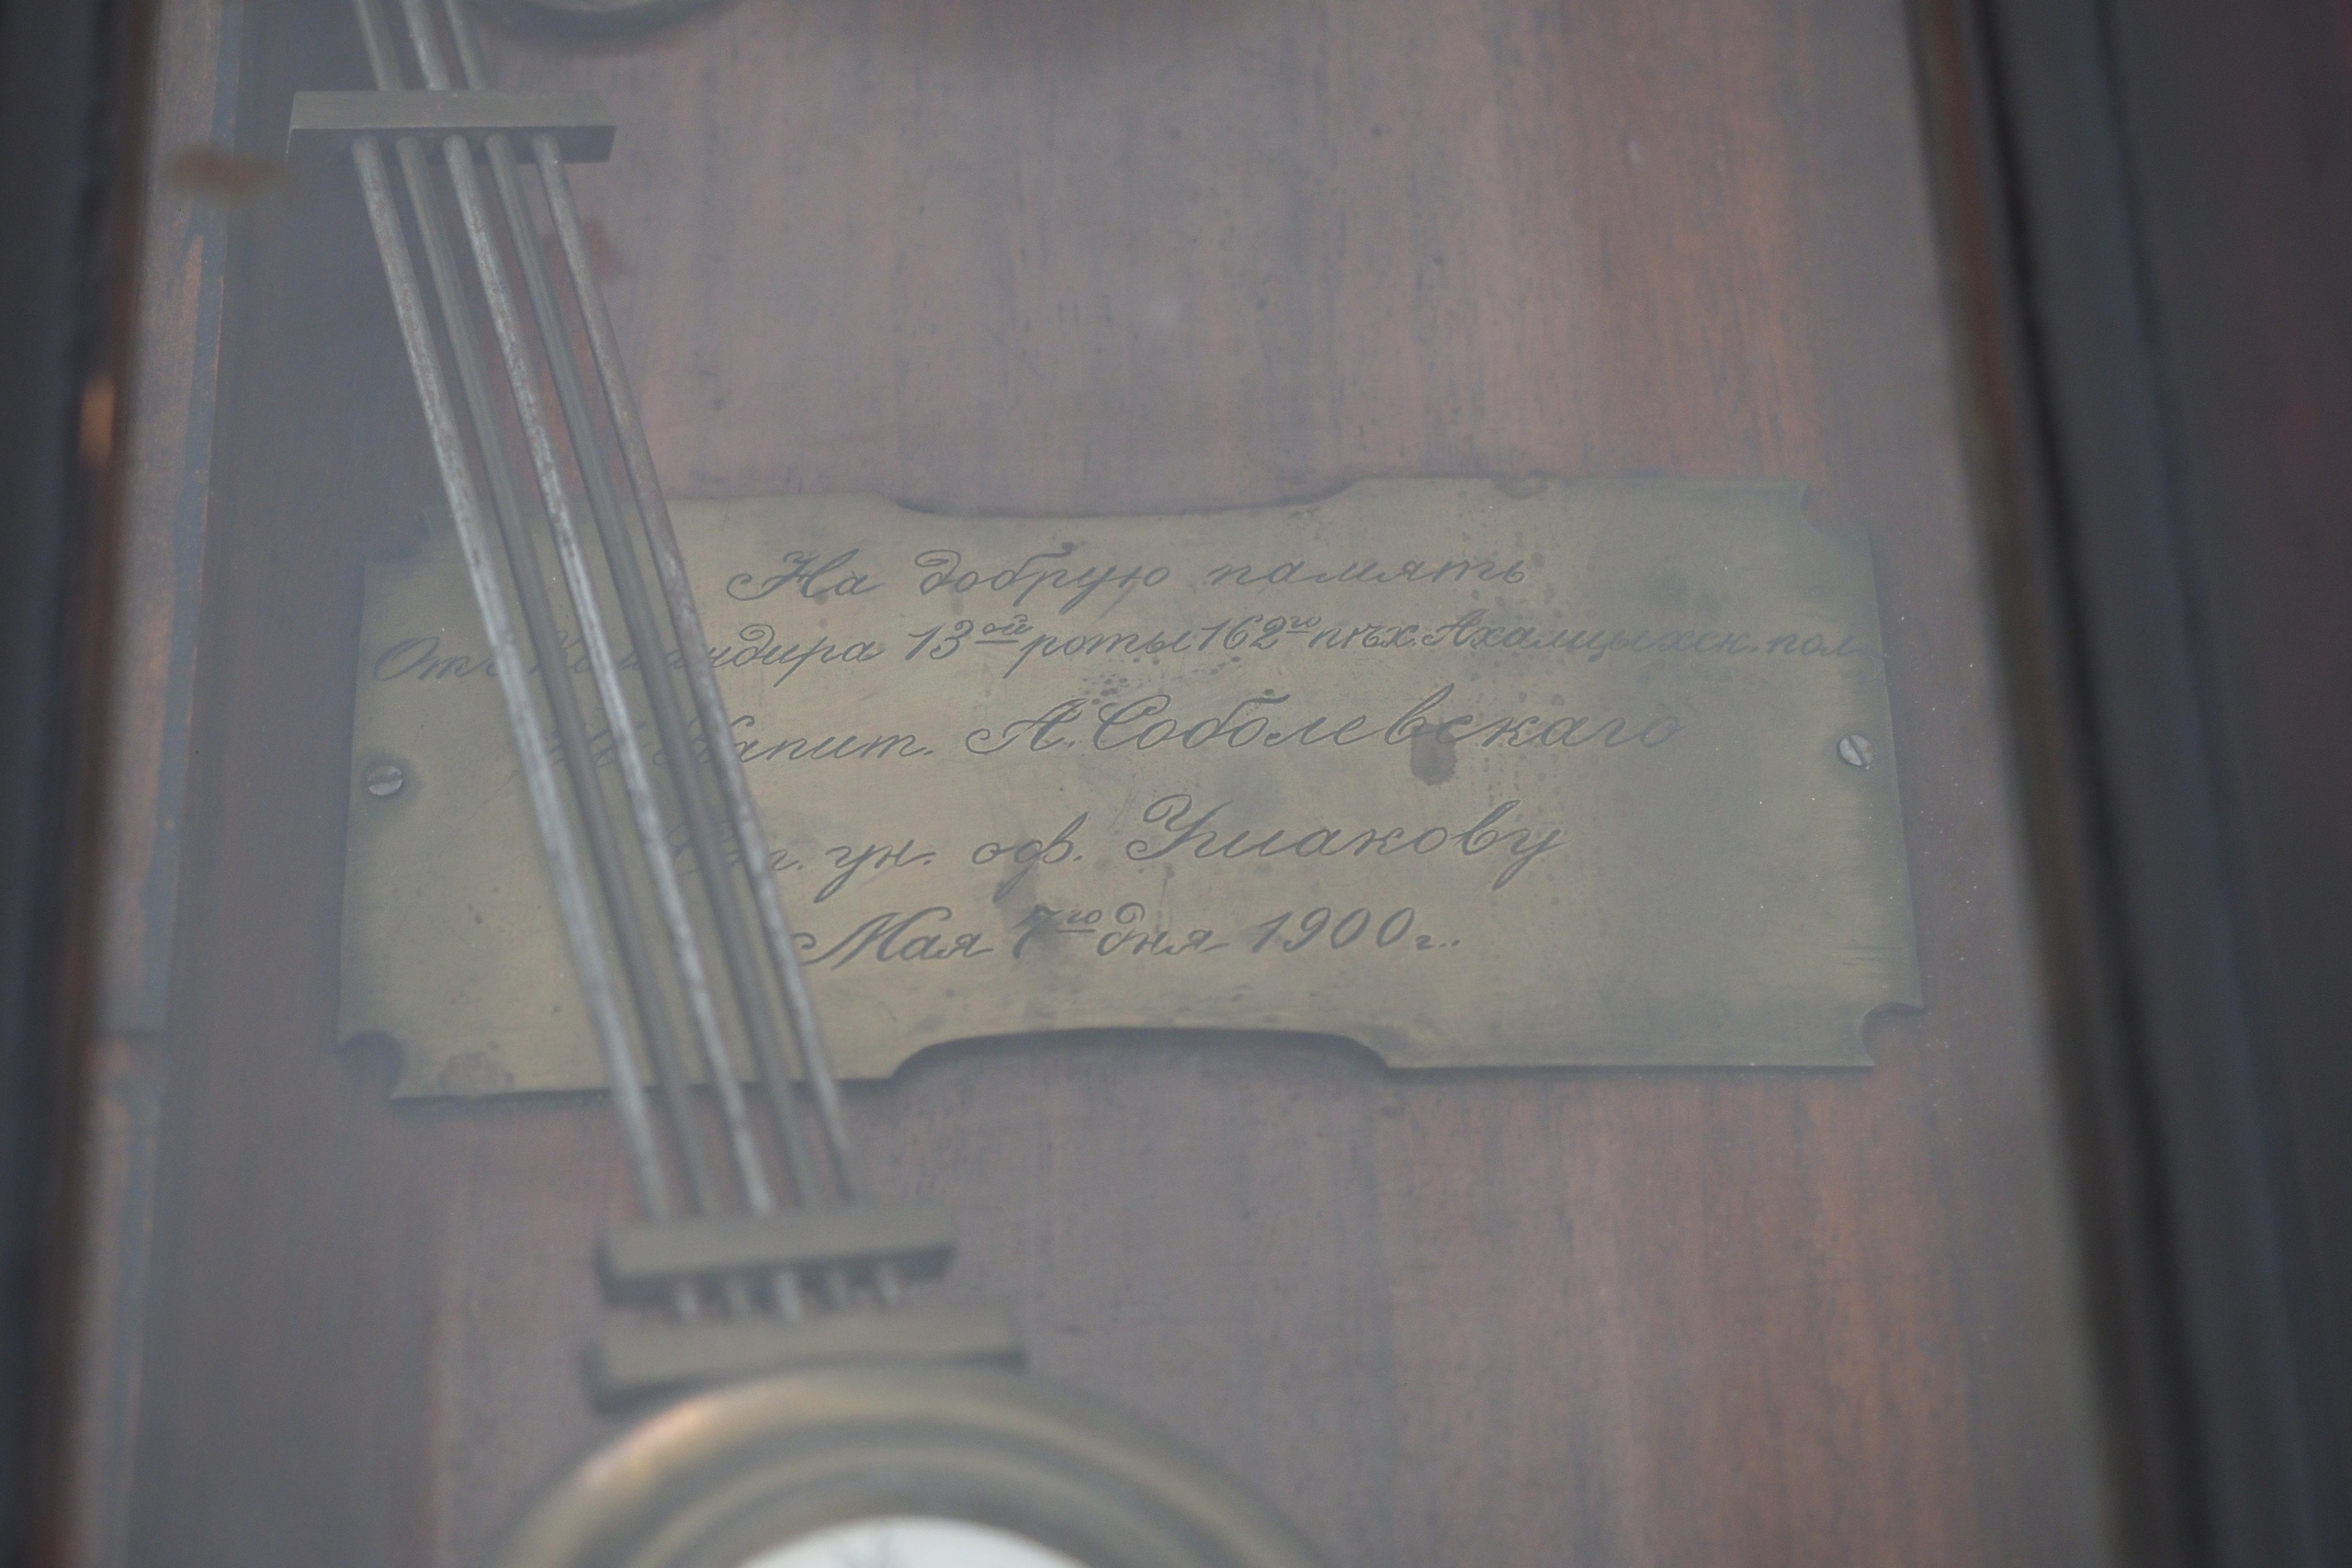 На добрую память
Отъ Командира 13ой роты 162го пѣх. Ахалцыхск. пол.
Капит. А. Соболевскаго
ун. оф. Ушакову
Мая 7го дня 1900 г.